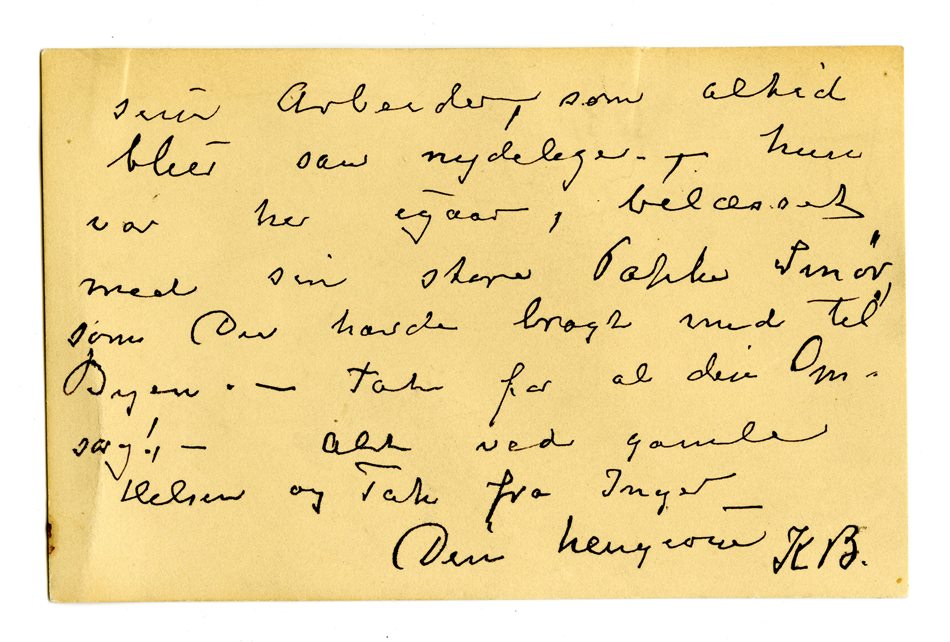 sine Arbeider, som altid
blier saa nydeleger. — hun
var her igaar, belæsset
med sin store Pakke Smør,
som Du havde bragt med til
Byen. — Tak for al din Om-
sorg! — Alt ved gamle
Hilsen og Tak fra Inger
Din hengivne KB.